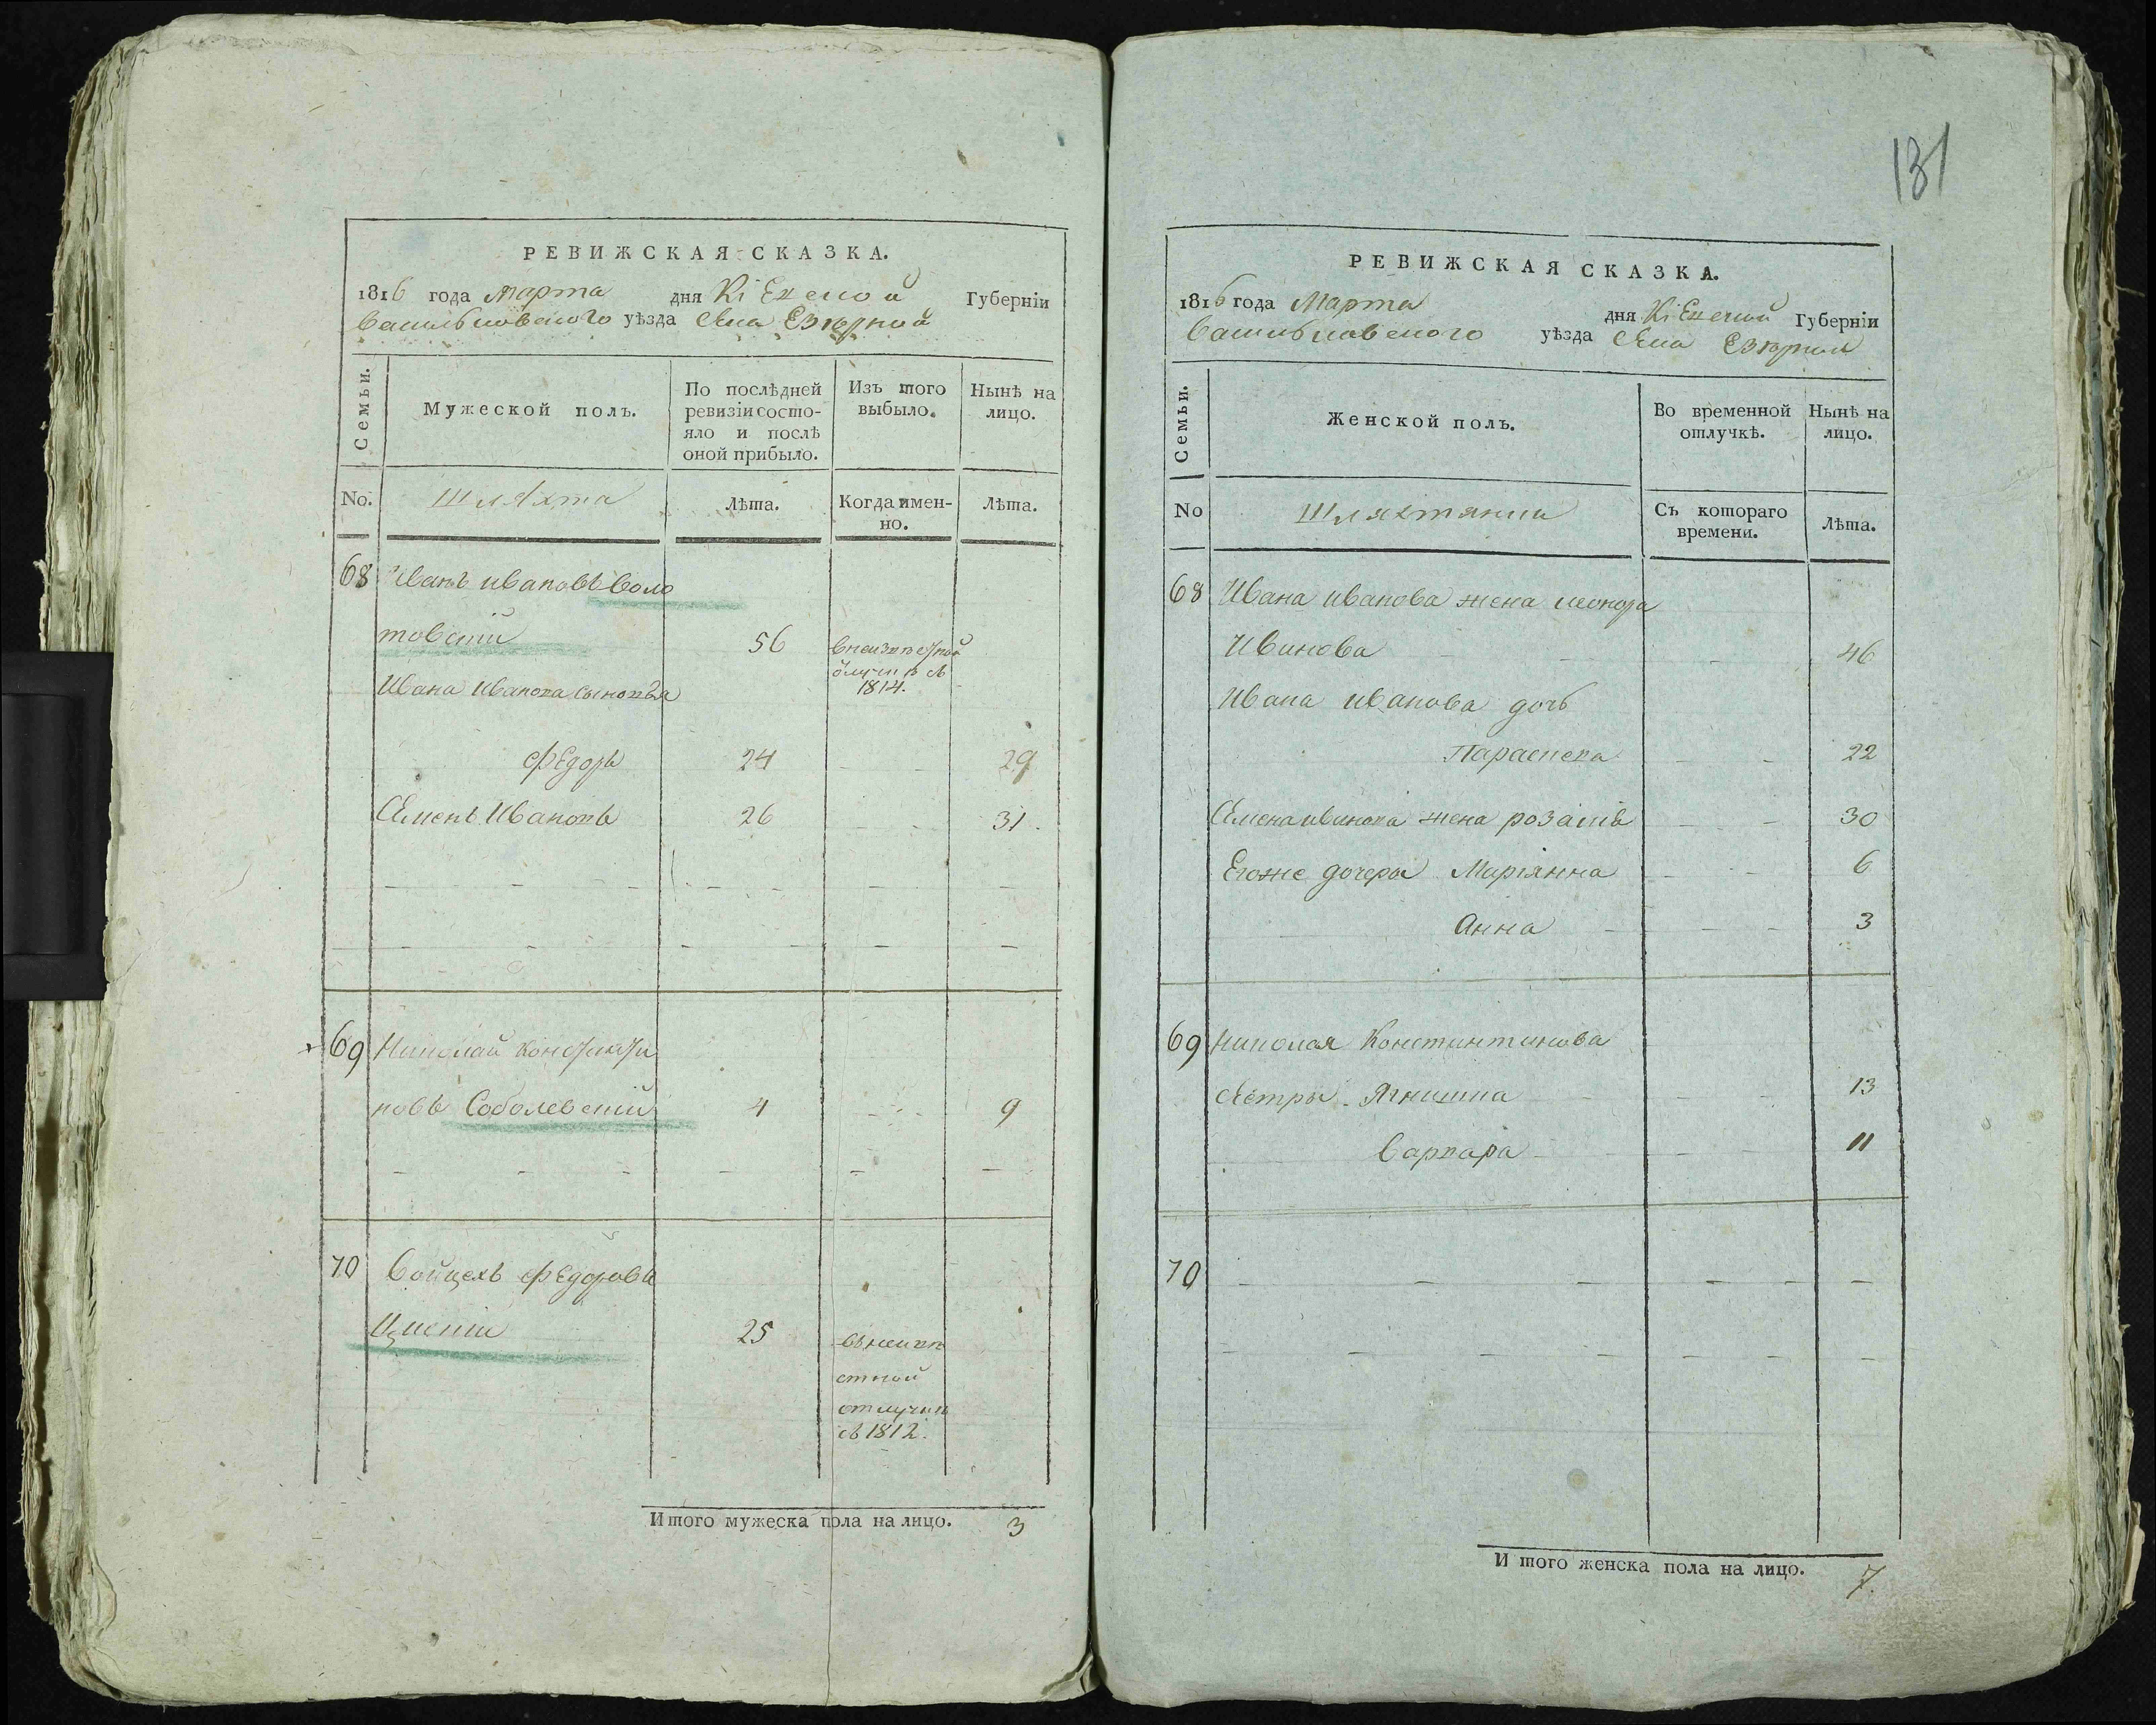 РЕВИЖСКАЯ СКАЗКА.
1816 года Марта дня Кіевской Губерніи
Васильковского уѣзда Села Езерной
Семьи.
Мужеской полъ.
По послѣдней ревизіи состояло и послѣ оной прибыло.
Изъ того выбыло.
Нынѣ на лицо.
No. Шляхта Лѣта. Когда имен-но. Лѣта.
68 Иванъ Ивановъ Воло
товский 56 в неизвестной
отлучке съ
1814.
Ивана Иванова сыновья
Федоръ 24 29
Семенъ Ивановъ 26 31.
69 Николай Константи
новъ Соболевский 4 9
70 Войцехъ Федоровъ
25 въ неизве
стной
отлучки
съ 1812.
Итого мужеска пола на лицо. 3
131
РЕВИЖСКАЯ СКАЗКА.
1816 года Марта дня Кіевской Губерніи
Васильковского уѣзда Села Езерной
Семьи.
Женской полъ.
Во временной отлучкѣ.
Нынѣ на лицо.
No Шляхтянки Съ котораго времени. Лѣта.
68 Ивана Иванова жена
Иванова 46
Ивана Иванова дочь
Параскева 22
Семена Иванова жена розалія 30
Егоже дочери Маріянна 6
Анна 3
69 Николая Константинова
сестры Ягнишка 13
Варвара 11
70
И того женска пола на лицо. 7.